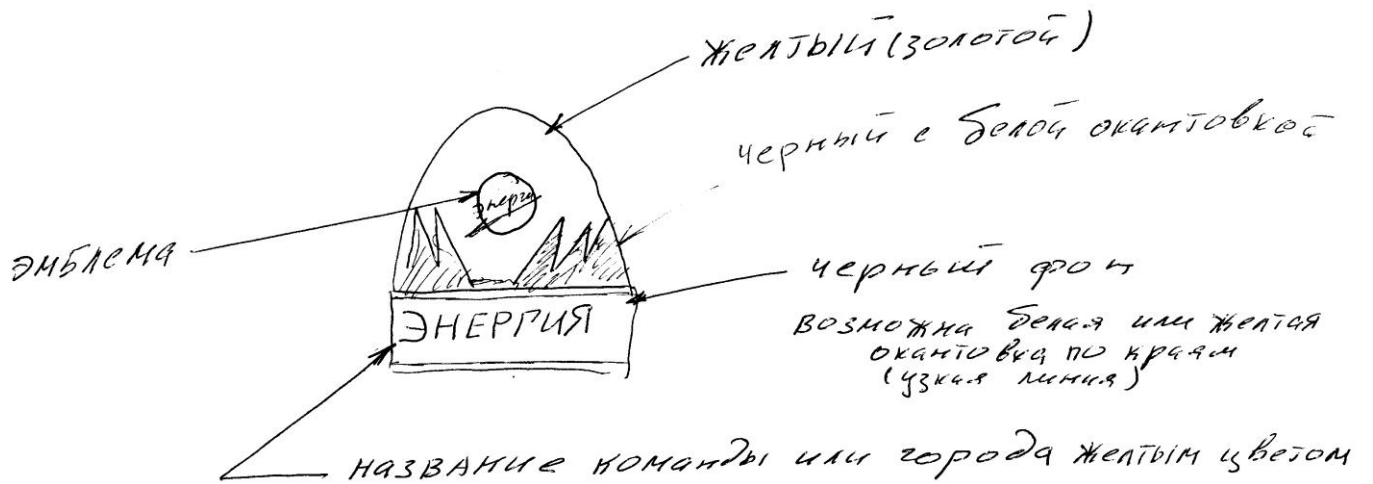 желтый (золотой)
черный с белой окантовкой
энерги
эмблема
черный фон
ЭНЕРГИЯ
возможна белая или желтая
окантовка по краям
(узкая линия)
название команды или города желтым цветом